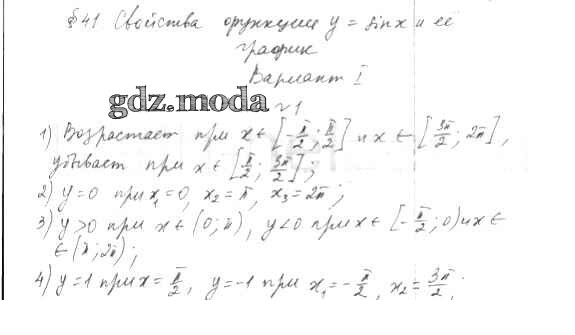 §41 Свойства функции y = sinx и её
график
Вариант I
gdz.moda
№1
1) Возрастает при x ∈ [-π/2; π/2] и x ∈ [3π/2; 2π],
убывает при x ∈ [π/2; 3π/2];
2) y=0 при x₁=0, x₂=π, x₃=2π;
3) y>0 при x ∈ (0; π), y<0 при x ∈ [-π/2; 0) и x ∈
∈ (π; 2π);
4) y=1 при x=π/2, y=-1 при x₁=-π/2, x₂=3π/2;